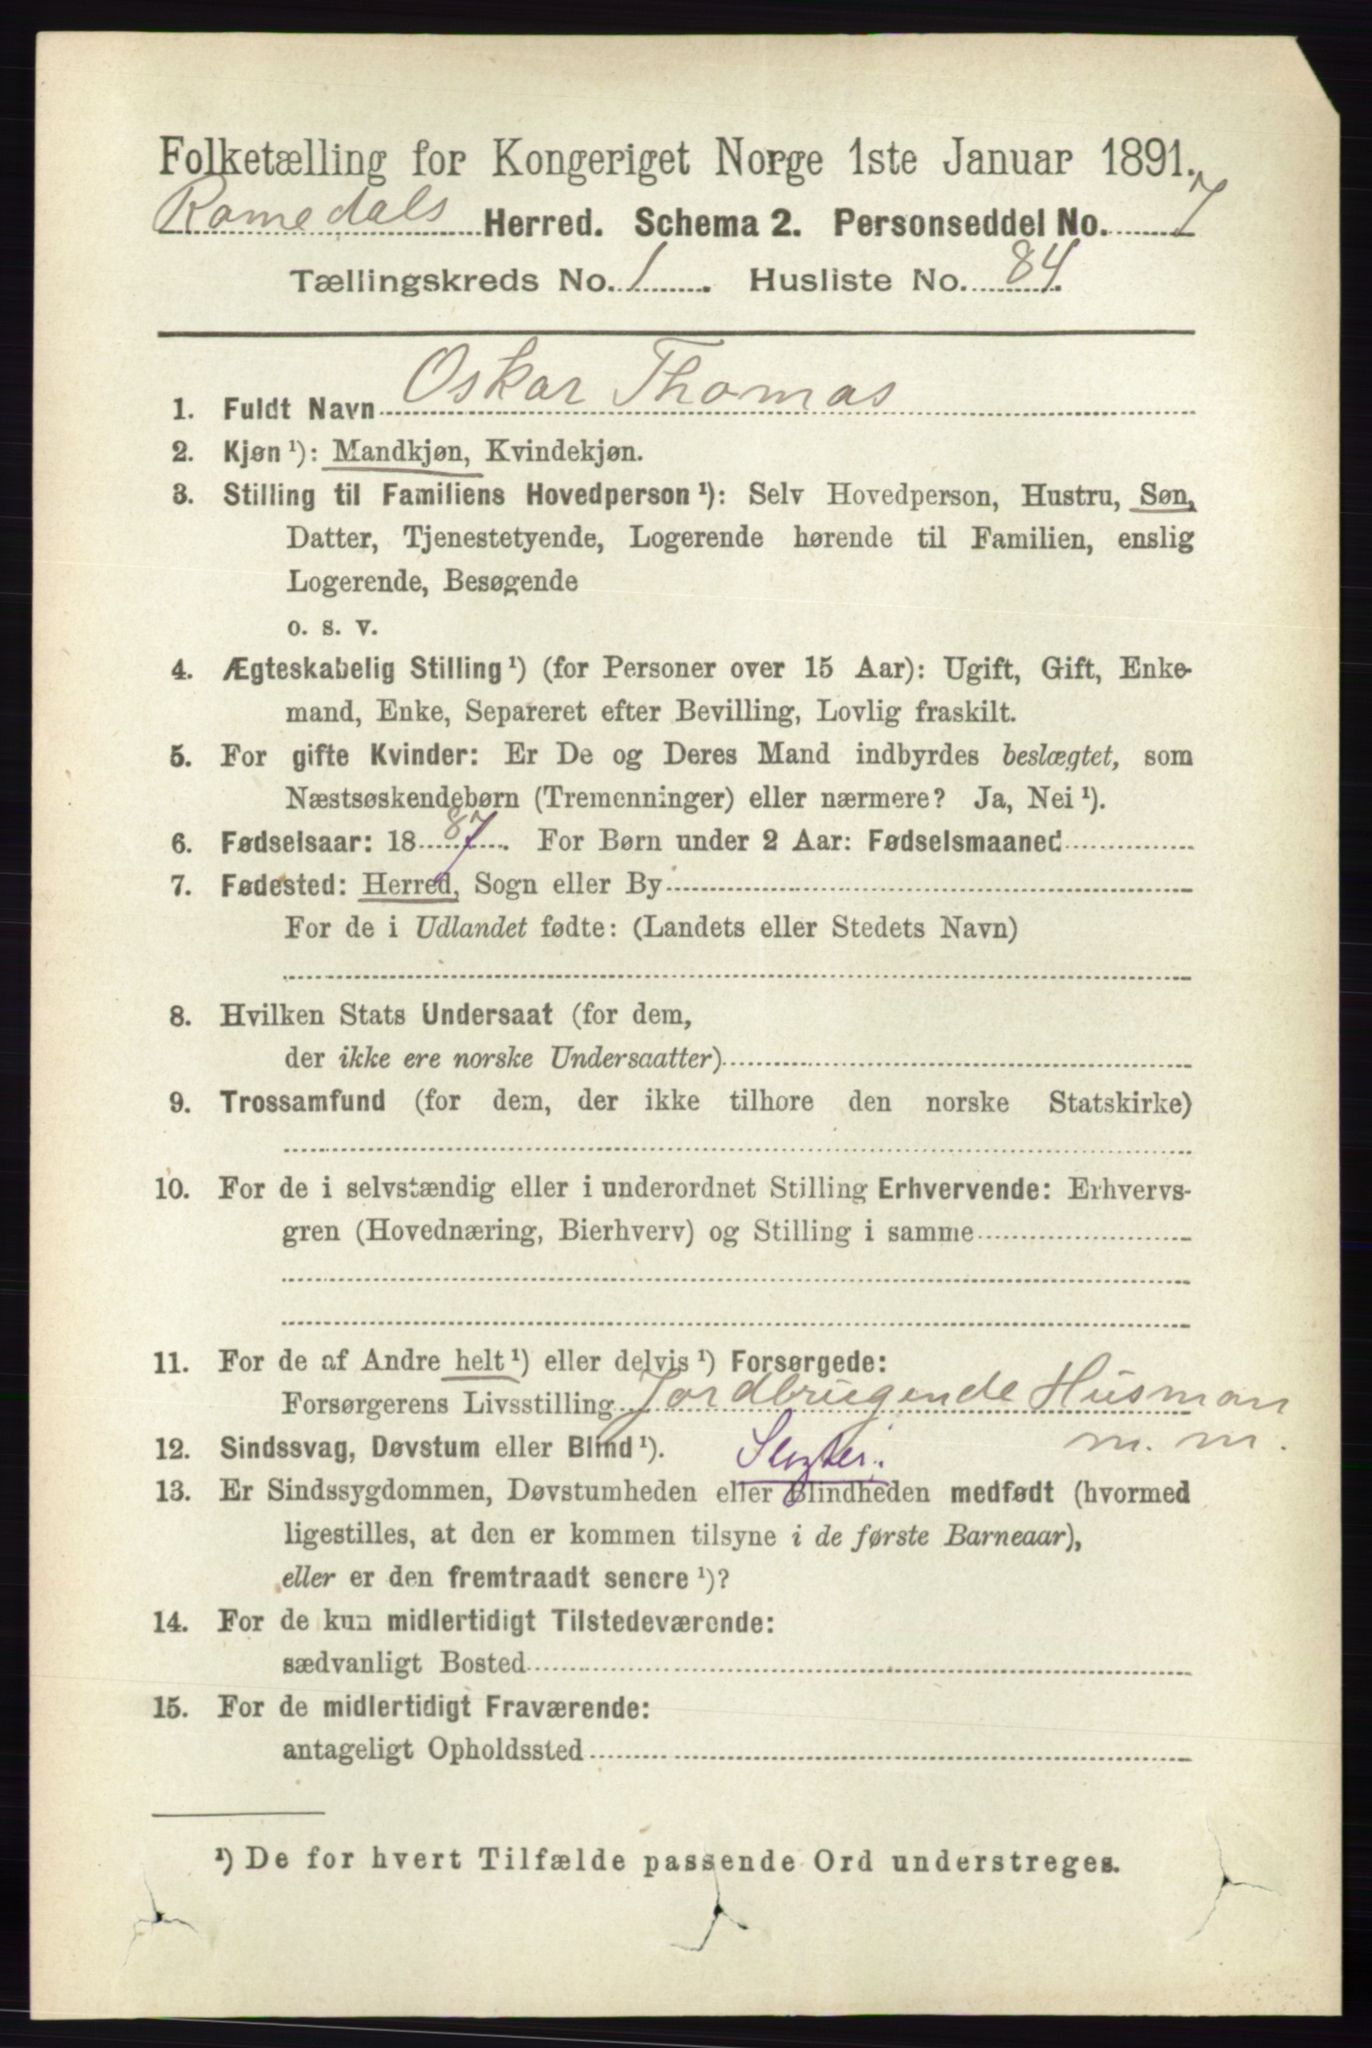 Folketælling for Kongeriget Norge 1ste Januar 1891.
Romedals Herred. Schema 2. Personseddel No. 7
Tællingskreds No. 1. Husliste No. 84.
1. Fuldt Navn Oskar Thomas
2. Kjøn ¹): Mandkjøn, Kvindekjøn.
3. Stilling til Familiens Hovedperson ¹): Selv Hovedperson, Hustru, Søn,
Datter, Tjenestetyende, Logerende hørende til Familien, enslig
Logerende, Besøgende
o. s. v.
4. Ægteskabelig Stilling ¹) (for Personer over 15 Aar): Ugift, Gift, Enke-
mand, Enke, Separeret efter Bevilling, Lovlig fraskilt.
5. For gifte Kvinder: Er De og Deres Mand indbyrdes beslægtet, som
Næstsøskendebørn (Tremenninger) eller nærmere? Ja, Nei ¹).
6. Fødselsaar: 1887. For Børn under 2 Aar: Fødselsmaaned
7. Fødested: Herred, Sogn eller By
For de i Udlandet fødte: (Landets eller Stedets Navn)
8. Hvilken Stats Undersaat (for dem,
der ikke ere norske Undersaatter)
9. Trossamfund (for dem, der ikke tilhore den norske Statskirke)
10. For de i selvstændig eller i underordnet Stilling Erhvervende: Erhvervs-
gren (Hovednæring, Bierhverv) og Stilling i samme
11. For de af Andre helt ¹) eller delvis ¹) Forsørgede:
Forsørgerens Livsstilling Jordbrugende Husman
m. m.
12. Sindssvag, Døvstum eller Blind ¹).
13. Er Sindssygdommen, Døvstumheden eller Blindheden medfødt (hvormed
ligestilles, at den er kommen tilsyne i de første Barneaar),
eller er den fremtraadt senere ¹)?
14. For de kun midlertidigt Tilstedeværende:
sædvanligt Bosted
15. For de midlertidigt Fraværende:
antageligt Opholdssted
¹) De for hvert Tilfælde passende Ord understreges.